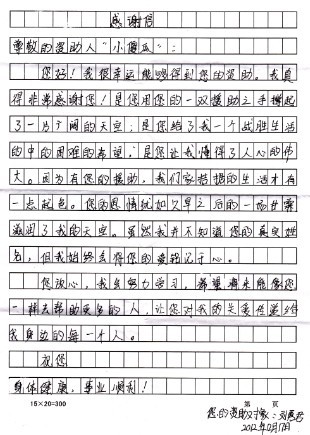 感谢信
尊敬的资助人“小傻瓜”：
您好！我很幸运能够得到您的资助。我真
得非常感谢您！是您用您的一双援助之手撑起
了一片广阔的天空；是您给了我一个战胜生活
的中的困难的希望，是您让我懂得了人心的伟
大。因为有您的援助，我们家拮据的生活才有
一点起色。您的恩情就如久旱之后的一场甘霖
滋润了我的天空。虽然我并不知道您的真实姓
名，但我始终会将您的牢记于心。
您放心，我会努力学习，希望将来能像您
一样去帮助更多的人，让您对我的关爱传递给
我身边的每一个人。
祝您
身体健康，事业顺利！
15×20=300 第 页
您的资助对象：刘
2012年月17日